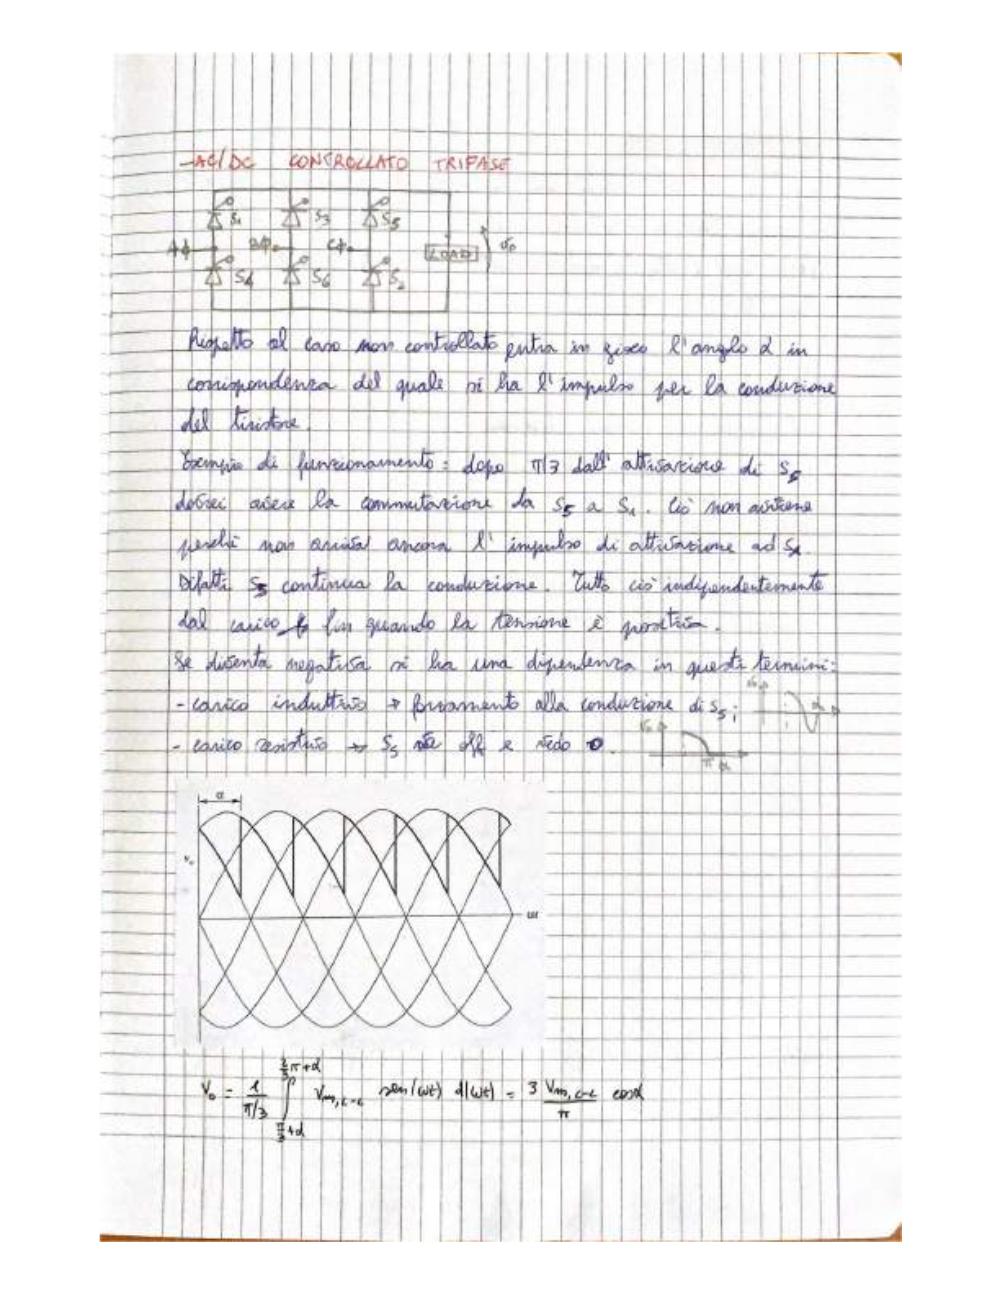 -AC/DC CONTROLLATO TRIFASE
S1 S3 S5
Aϕ Bϕ Cϕ LOAD v0
S4 S6 S2
Rispetto al caso non controllato entra in gioco l'angolo α in
corrispondenza del quale si ha l'impulso per la conduzione
del tiristore.
Esempio di funzionamento: dopo π/3 dall'attivazione di S6
dovrei avere la commutazione da S5 a S1. Ciò non avviene
perchè non arriva ancora l'impulso di attivazione ad S1.
Difatti S5 continua la conduzione. Tutto ciò indipendentemente
dal carico fin quando la tensione è positiva.
Se diventa negativa si ha una dipendenza in questi termini:
- carico induttivo → forzamento alla conduzione di S5;
- carico resistivo → S5 va off e vedo 0.
v0 α
v0 π α
α
v0
ωt
V0 = 1/(π/3) ∫ π/3+α 2/3π+α Vm,L-L sen(ωt) d(ωt) = 3 Vm,L-L/π cosα